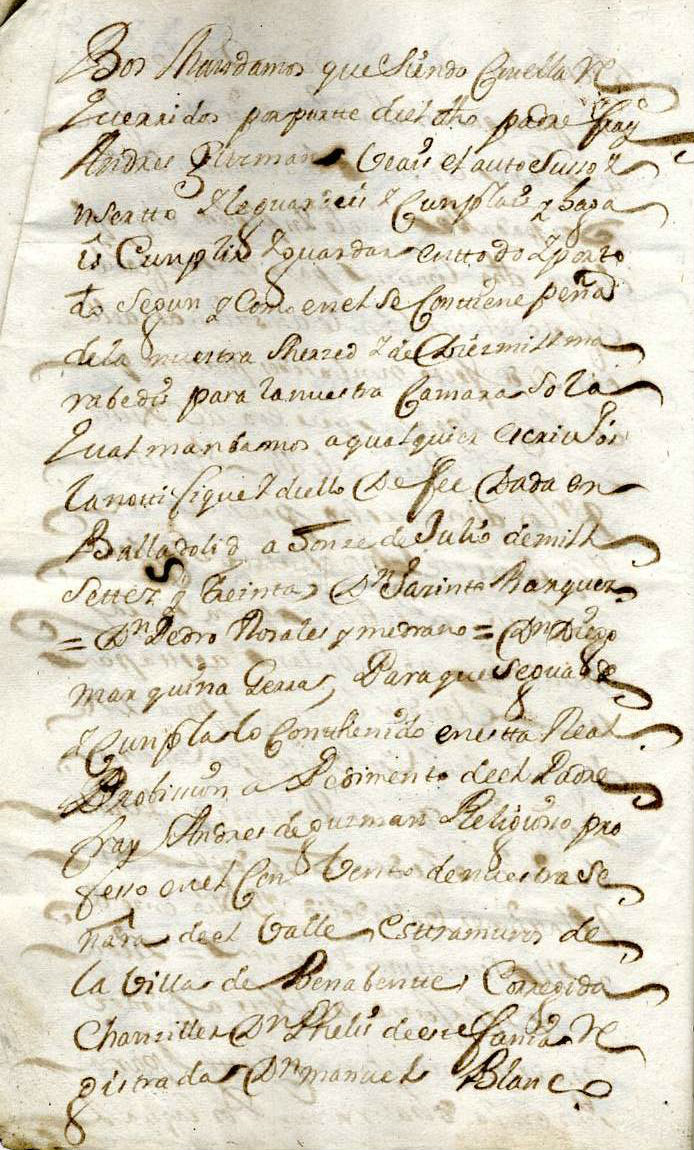 Bos Mandamos que siendo Con ella Re
querridos por parte del dho padre fray
Andres Guzman Veais el auto Suso Y
nsertto Y le guardeis Y Cunplais y haga
is Cunplir Y guardar en ttodo Y por to
do segun y Como en el se Conttiene pena
de la nuestra Merzed Y de Diez mill ma
rabedis para la nuestra Camara So la
qual mandamos a qualquier escriv
la notifique Y dello De fee Dada en
Balladolid a Honze de Julio de mill
settez.s y treinta Dn Jazinto Barquez
= Dn Pedro Rosales y medrano = Dn Diego
marquina Para que se guarde
Y Cunpla lo Conthenido en estta Real
Probission a Pedimento de el Padre
fray Andres de guzman Religioso pro
fesso en el Con Vento de nuestra Se
ñora de el Valle esttramuros de
la Villa de Benabente Corregida
Chanziller Dn Phelis de estefania Re
gistrada Dn manuel Blanco